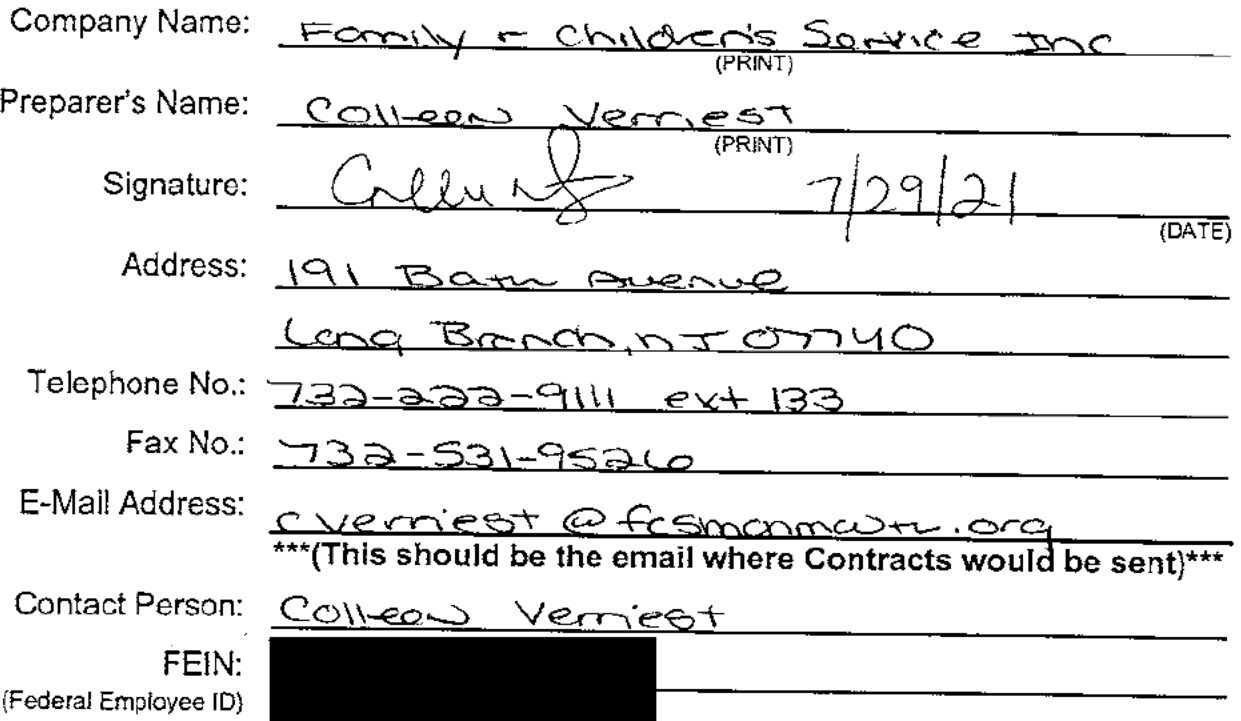 Company Name: Family & Children's Service Inc
(PRINT)
Preparer's Name: Colleen Verriest
(PRINT)
Signature: 7/29/21
(DATE)
Address: 191 Bath Avenue
Long Branch, NJ 07740
Telephone No.: 732-222-9111 ext 133
Fax No.: 732-531-9526
E-Mail Address: cverriest@fcsmonmouth.org
***(This should be the email where Contracts would be sent)***
Contact Person: Colleen Verriest
FEIN:
(Federal Employee ID)